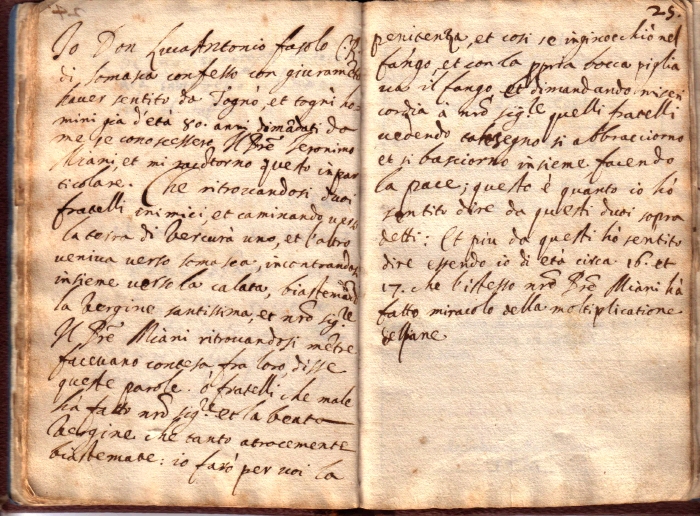 Io Don LucaAntonio fasolo C.R.
di somasca confesso con giuramẽto
haver sentito da Togno, et togni ho-
mini già d'età 80. anni dimãdati da
me se conoscessero Il Prẽ Ieronimo
Miani, et mi racótorno questo in par
ticolare. Che ritrovandosi duoi
fratelli inimici, et caminando verso
la terra di Vercurà uno, et l'altro
veniva verso somasca, incontrandosi
insieme verso la calata, biastemãdo
la Vergine santissima, et nrõ sig.re
Il Prẽ Miani ritrovandosi mẽtre
facevano contesa fra loro, disse
queste parole. ò fratelli che male
hà fatto nrõ sig.re et la beata
Vergine che tanto atrocemente
biastemate: io farò per voi la
25.
penitenza, et cosi se inginocchiò nel
fango, et con la ppria bocca piglia
va il fango, et dimandando miseri
cordia à nrõ sig.re quelli fratelli
vedendo tal segno si abbracciorno
et si basciorno insieme facendo
la pace; questo è quanto io hò
sentito dire da questi duoi sopra
detti: Et piu da questi hò sentito
dire essendo io di età circa 16. et
17. che l'istesso nrõ Prẽ Miani hà
fatto miracolo della moltiplicatione
del pane